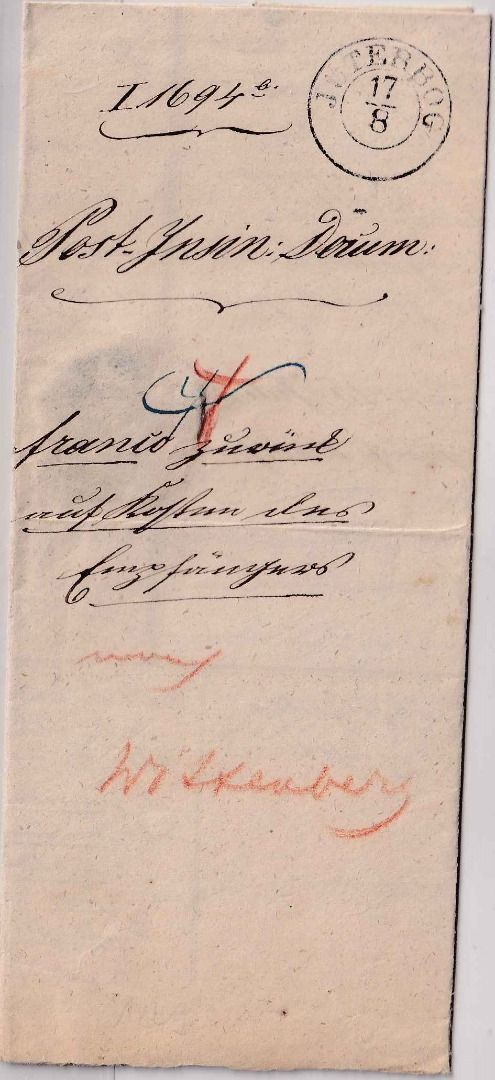 JÜTERBOG
17
8
I 1694 b.
Post-Insin: Docum:
franco zurück
auf Kosten des
Empfängers
nach
Wittenberg